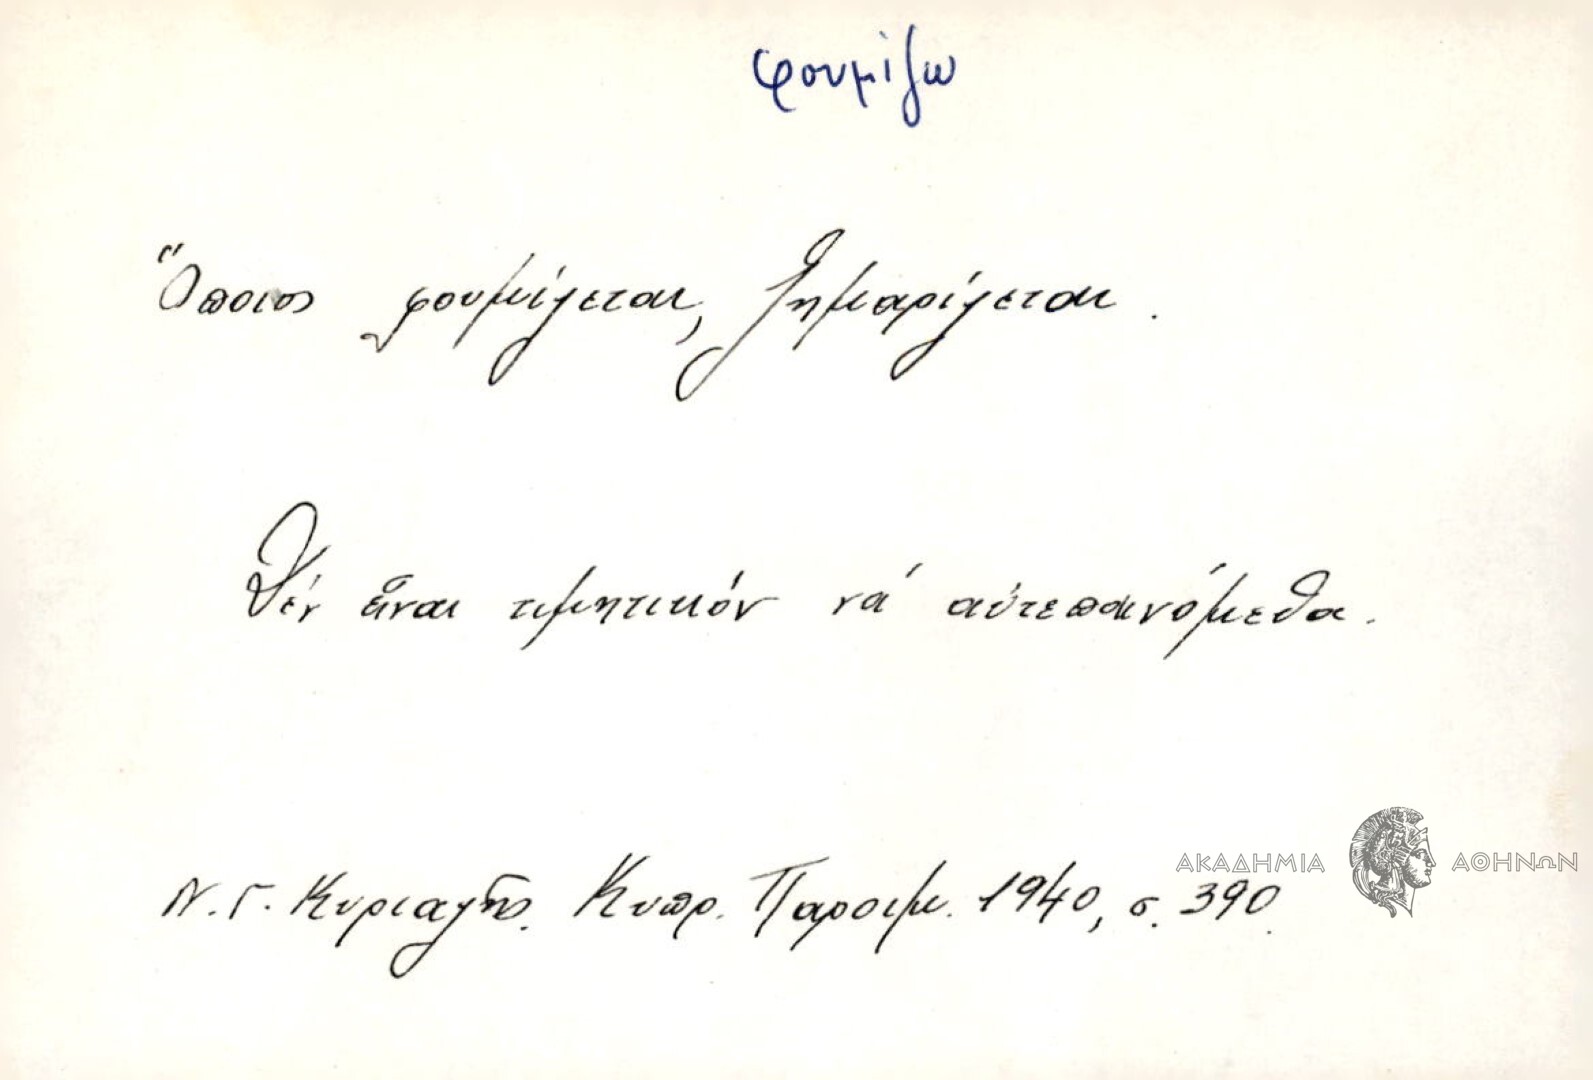 φουμίζω
Ὅποιος φουμίζεται, ζημαρίζεται.
Δέν εἶναι τιμητικόν νά αὐτεπαινόμεθα.
Ν. Γ. Κυριαζῆς. Κυπρ. Παροιμ. 1940, σ. 390.
ΑΚΑΔΗΜΙΑ ΑΘΗΝΩΝ